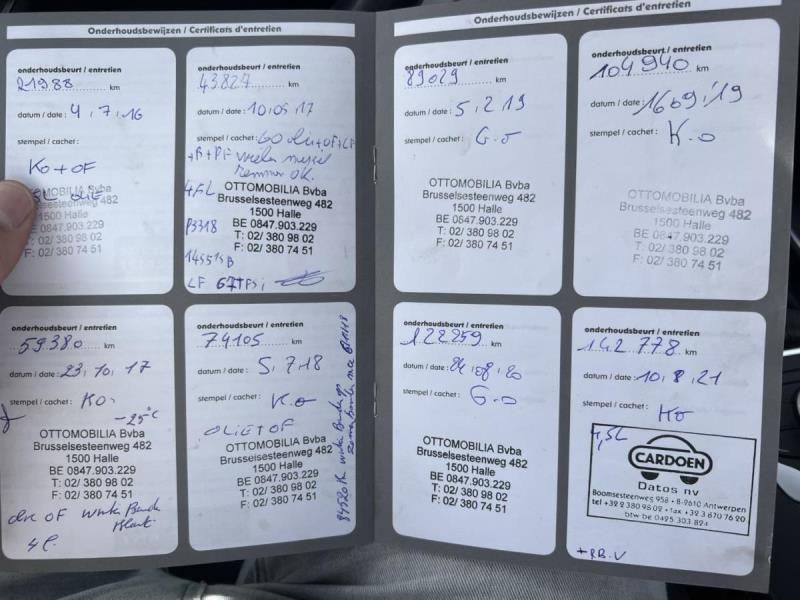 Onderhoudsbewijzen / Certificats d'entretien
onderhoudsbeurt / entretien
21988 km
datum / date : 4, 7, 16
stempel / cachet :
KO + OF
5L OLIE
OTTOMOBILIA Bvba
Brusselsesteenweg 482
1500 Halle
BE 0847.903.229
T: 02/ 380 98 02
F: 02/ 380 74 51
onderhoudsbeurt / entretien
43827 km
datum / date : 10, 05, 17
stempel / cachet : GO olie+OF+LF
+B+PF
remmen OK.
4,5L
OTTOMOBILIA Bvba
Brusselsesteenweg 482
1500 Halle
BE 0847.903.229
T: 02/ 380 98 02
F: 02/ 380 74 51
P3318
LF
onderhoudsbeurt / entretien
59380 km
datum / date : 23, 10, 17
stempel / cachet : KO
-25°C
OTTOMOBILIA Bvba
Brusselsesteenweg 482
1500 Halle
BE 0847.903.229
T: 02/ 380 98 02
F: 02/ 380 74 51
olie OF winter Banden
4 l.
onderhoudsbeurt / entretien
74105 km
datum / date : 5, 7, 18
stempel / cachet : K.O
OLIE+OF
OTTOMOBILIA Bvba
Brusselsesteenweg 482
1500 Halle
BE 0847.903.229
T: 02/ 380 98 02
F: 02/ 380 74 51
Onderhoudsbewijzen / Certificats d'entretien
onderhoudsbeurt / entretien
89029 km
datum / date : 5, 2, 19
stempel / cachet : G.O
OTTOMOBILIA Bvba
Brusselsesteenweg 482
1500 Halle
BE 0847.903.229
T: 02/ 380 98 02
F: 02/ 380 74 51
onderhoudsbeurt / entretien
104940 km
datum / date : 16 09, 19
stempel / cachet : K.O
OTTOMOBILIA Bvba
Brusselsesteenweg 482
1500 Halle
BE 0847.903.229
T: 02/ 380 98 02
F: 02/ 380 74 51
onderhoudsbeurt / entretien
122259 km
datum / date : 24, 08, 20
stempel / cachet : G.O
OTTOMOBILIA Bvba
Brusselsesteenweg 482
1500 Halle
BE 0847.903.229
T: 02/ 380 98 02
F: 02/ 380 74 51
onderhoudsbeurt / entretien
142.778 km
datum / date : 10, 8, 21
stempel / cachet : KO
4,5L
CARDOEN
Datos nv
Boomsesteenweg 958 - B-2610 Antwerpen
tel +32 2 380 98 02 - fax +32 3 870 76 20
btw-be 0425 303 824
+RB.V